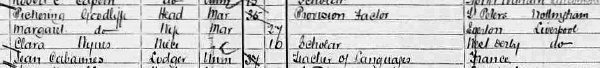 Pickering Goodliffe Head Mar 36 Provision Factor St Peters Nottingham
Margaret do Wife Mar 27 Egerton Liverpool
Clara Hynes Niece 16 Scholar West Derby do
Jean Cabannes Lodger Unm 37 Teacher of Languages France